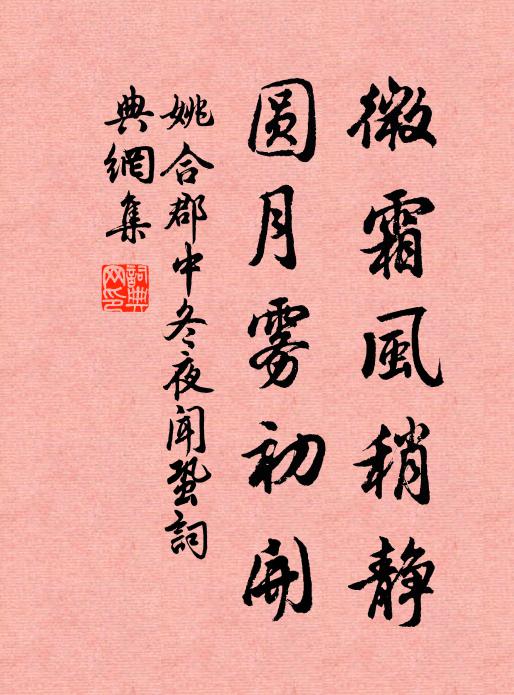 微霜風稍静
圆月雾初開
姚合郡中冬夜闻蛩詞
典網集
詞典网印